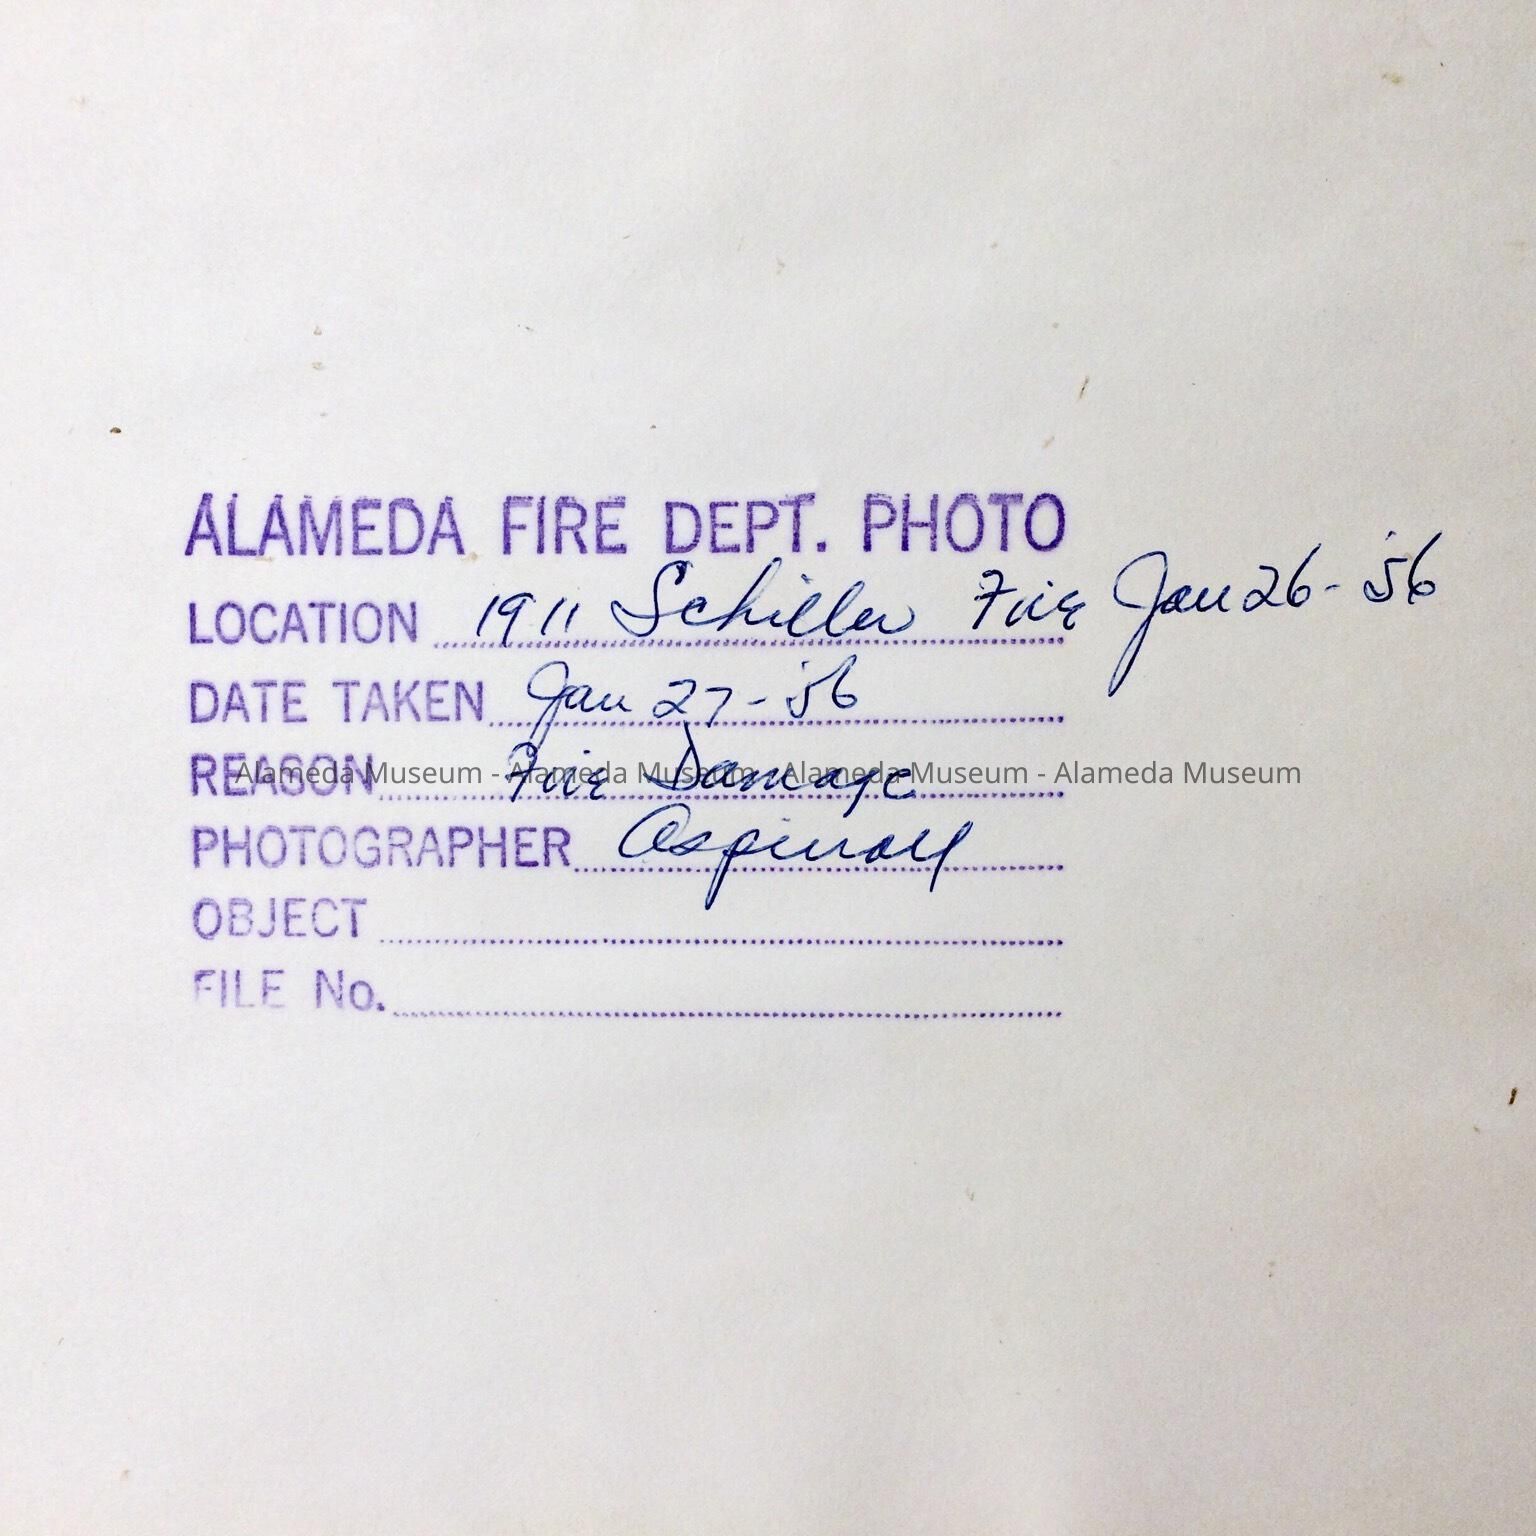 ALAMEDA FIRE DEPT. PHOTO
LOCATION 1911 Schiller Fire Jan 26 - '56
DATE TAKEN Jan 27 - '56
REASON Fire Damage
Alameda Museum - Alameda Museum - Alameda Museum - Alameda Museum
PHOTOGRAPHER Aspinall
OBJECT
FILE No.